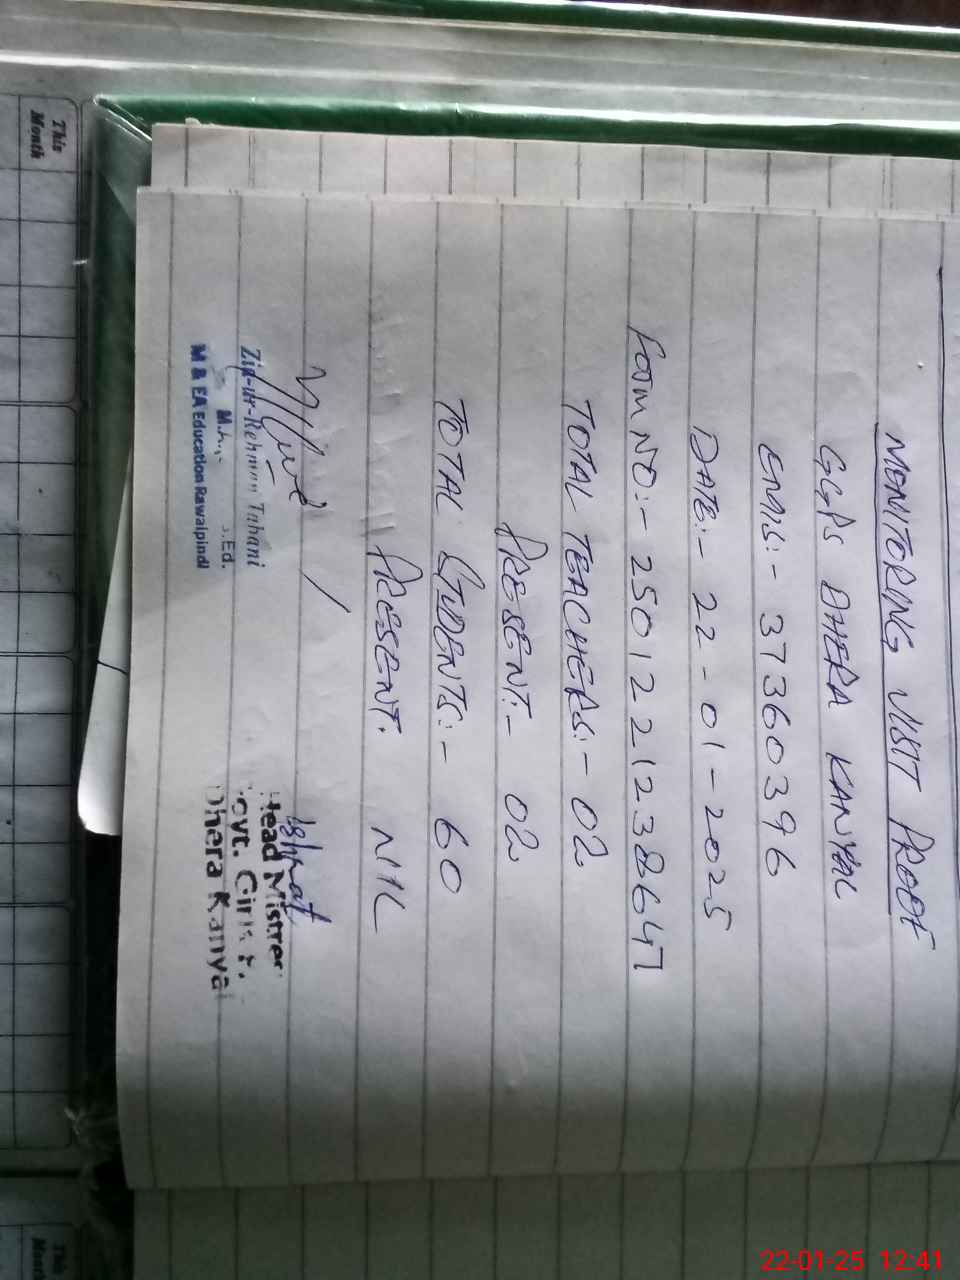 MONITORING VISIT PROOF
GGPS DHERA KANYAL
EMIS:- 37360396
DATE:- 22-01-2025
FORM NO:- 2501221238647
TOTAL TEACHERS:- 02
PRESENT:- 02
TOTAL STUDENTS:- 60
PRESENT. NIL
Zia-ur-Rehman Tahani
Ed.
M & EA Education Rawalpindi
Ishrat
Head Mistres
Govt. Girls P.
Dhera Kanyal
This
Month
This
Month
22-01-25 12:41